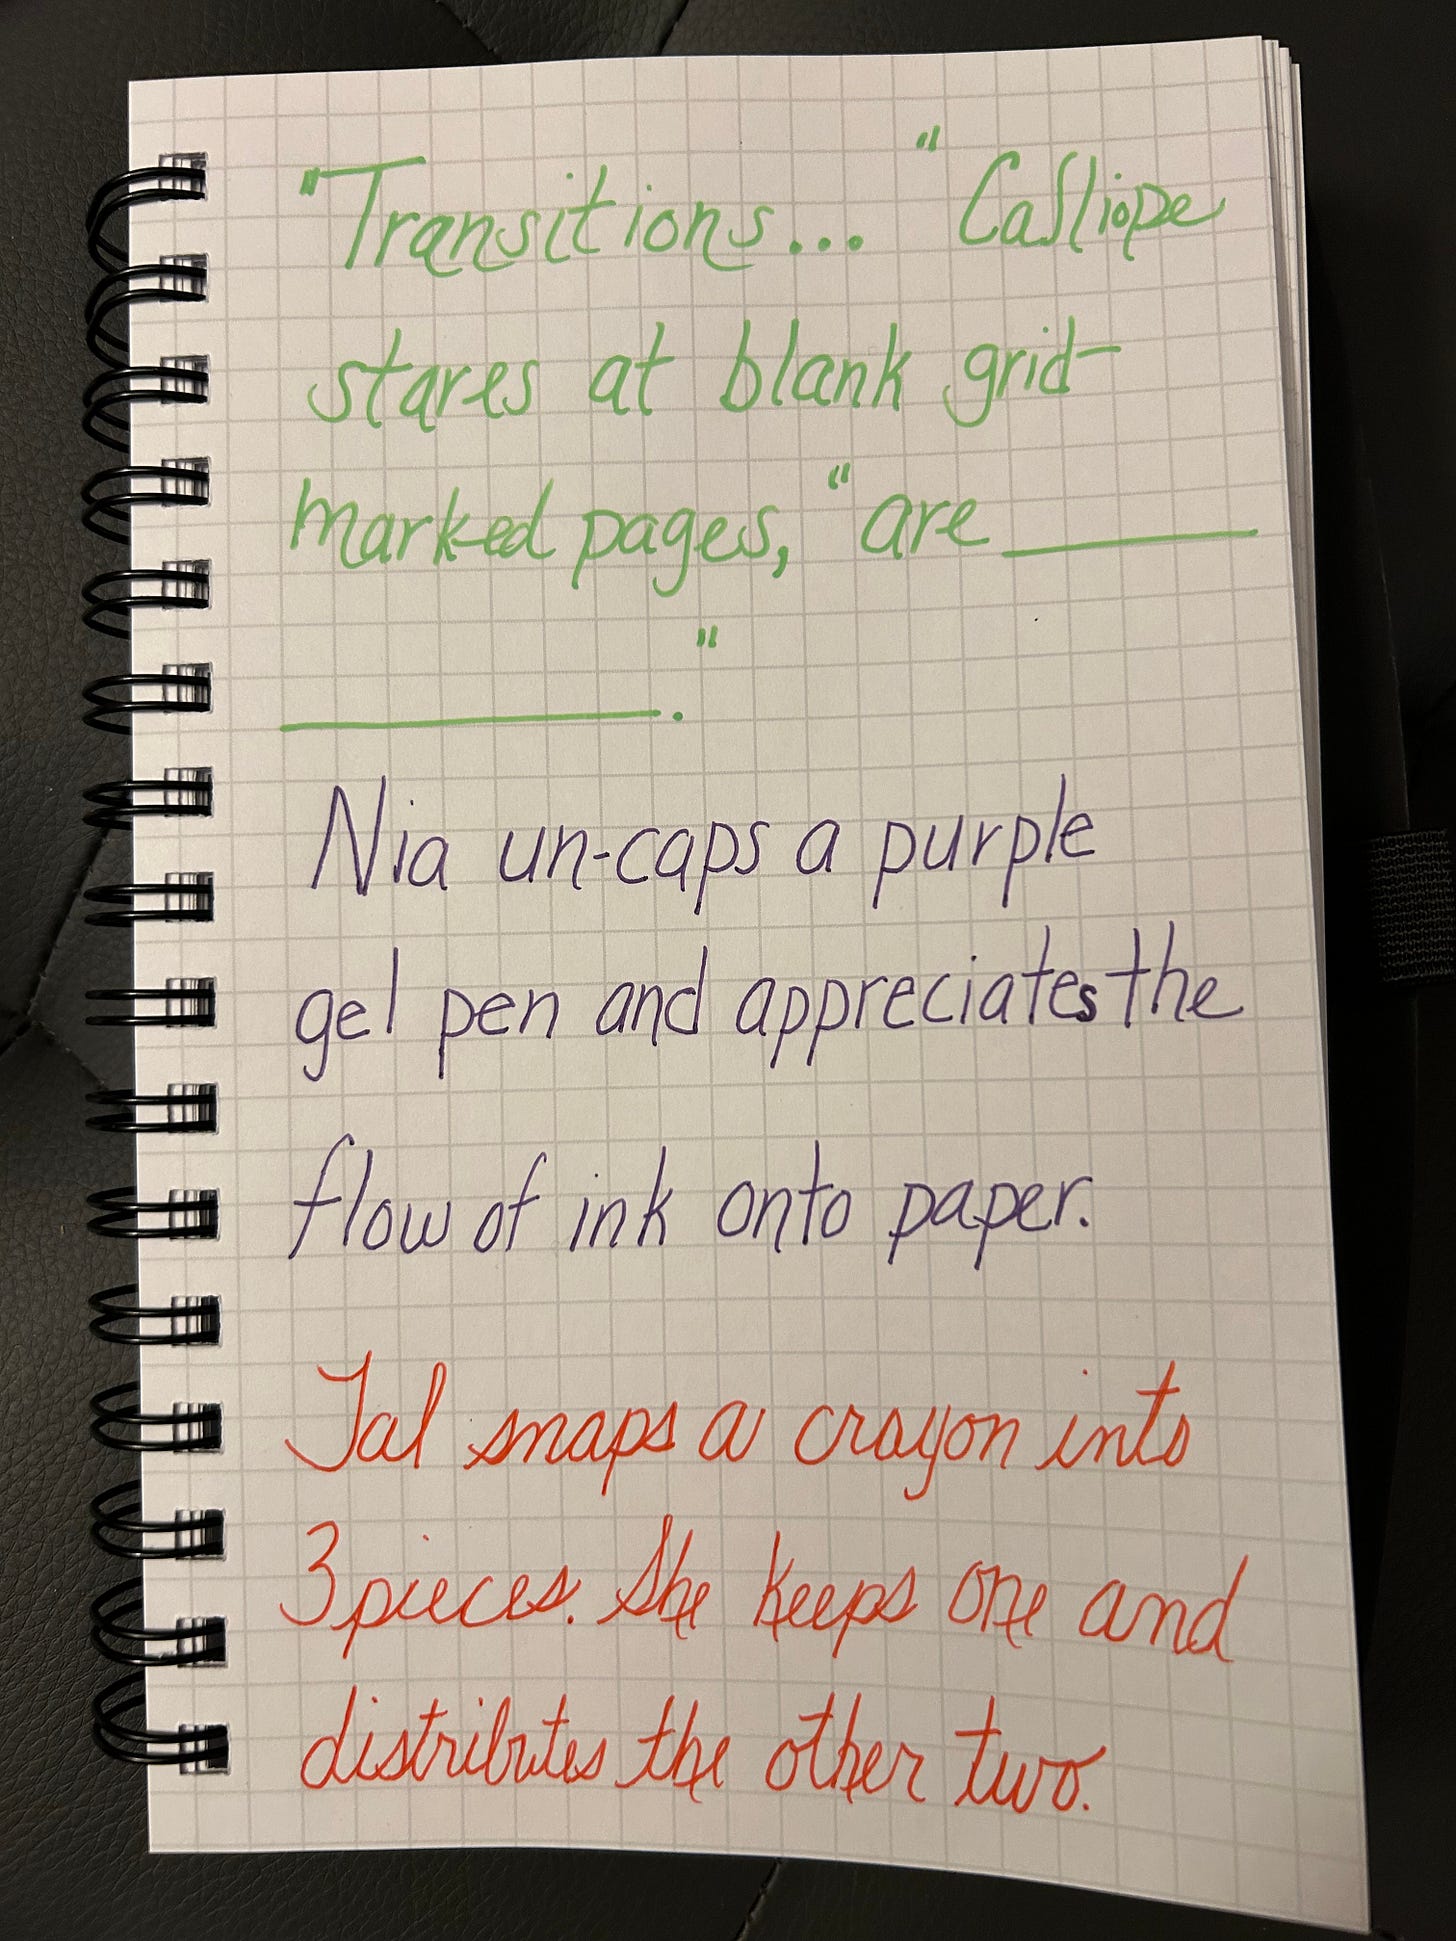 "Transitions..." Calliope
stares at blank grid-
marked pages, "are ________
____________."
Nia un-caps a purple
gel pen and appreciates the
flow of ink onto paper.
Tal snaps a crayon into
3 pieces. She keeps one and
distributes the other two.